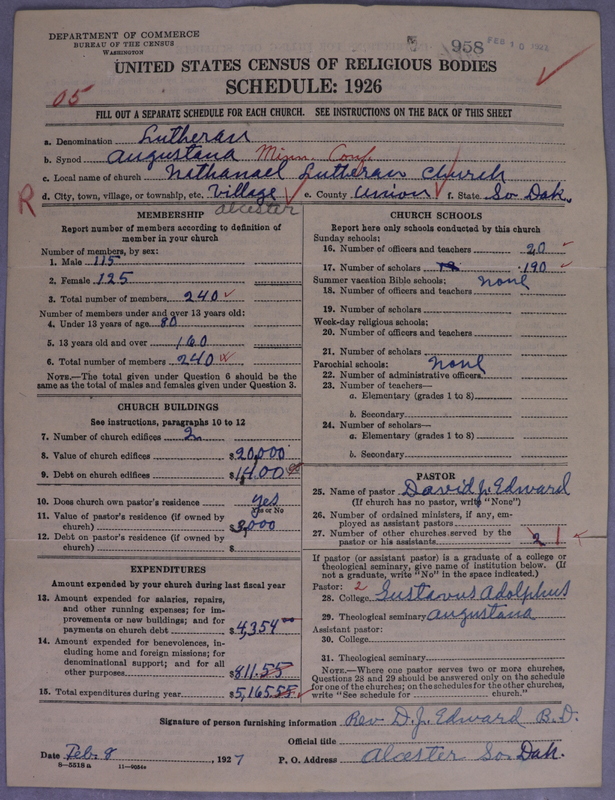 DEPARTMENT OF COMMERCE
BUREAU OF THE CENSUS
WASHINGTON
958
FEB 10
UNITED STATES CENSUS OF RELIGIOUS BODIES
SCHEDULE: 1926
05
FILL OUT A SEPARATE SCHEDULE FOR EACH CHURCH. SEE INSTRUCTIONS ON THE BACK OF THIS SHEET
a. Denomination Lutheran
b. Synod Augustana Minn. Conf.
c. Local name of church Nathanael Lutheran Church
R d. City, town, village, or township, etc. Village e. County Union f. State So Dak.
Alcester
MEMBERSHIP
Report number of members according to definition of
member in your church
Number of members, by sex:
1. Male 115
2. Female 125
3. Total number of members 240
Number of members under and over 13 years old:
4. Under 13 years of age 80
5. 13 years old and over 160
6. Total number of members 240
NOTE.—The total given under Question 6 should be the
same as the total of males and females given under Question 3.
CHURCH BUILDINGS
See instructions, paragraphs 10 to 12
7. Number of church edifices 2
8. Value of church edifices $20,000
9. Debt on church edifices $1400 00
10. Does church own pastor's residence yes
Yes or No
11. Value of pastor's residence (if owned by
church) $3,000
12. Debt on pastor's residence (if owned by
church) $
EXPENDITURES
Amount expended by your church during last fiscal year
13. Amount expended for salaries, repairs,
and other running expenses; for im-
provements or new buildings; and for
payments on church debt $4,354 00
14. Amount expended for benevolences, in-
cluding home and foreign missions; for
denominational support; and for all
other purposes $811.55
15. Total expenditures during year $5,165.55
CHURCH SCHOOLS
Report here only schools conducted by this church
Sunday schools:
16. Number of officers and teachers 20
17. Number of scholars 190
Summer vacation Bible schools: none
18. Number of officers and teachers
19. Number of scholars
Week-day religious schools:
20. Number of officers and teachers
21. Number of scholars
Parochial schools: none
22. Number of administrative officers
23. Number of teachers—
a. Elementary (grades 1 to 8)
b. Secondary
24. Number of scholars—
a. Elementary (grades 1 to 8)
b. Secondary
PASTOR
25. Name of pastor David J. Edward
(If church has no pastor, write "None")
26. Number of ordained ministers, if any, em-
ployed as assistant pastors
27. Number of other churches served by the
pastor or his assistants 2 1
If pastor (or assistant pastor) is a graduate of a college or
theological seminary, give name of institution below. (If
not a graduate, write "No" in the space indicated.)
Pastor: 2
28. College Gustavus Adolphus
29. Theological seminary Augustana
Assistant pastor:
30. College
31. Theological seminary
NOTE.—Where one pastor serves two or more churches,
Questions 28 and 29 should be answered only on the schedule
for one of the churches; on the schedules for the other churches,
write "See schedule for church."
Signature of person furnishing information Rev D. J. Edward B. D.
Official title
Date Feb. 8 1927 P. O. Address Alcester So. Dak.
8—5518 a 11—9054